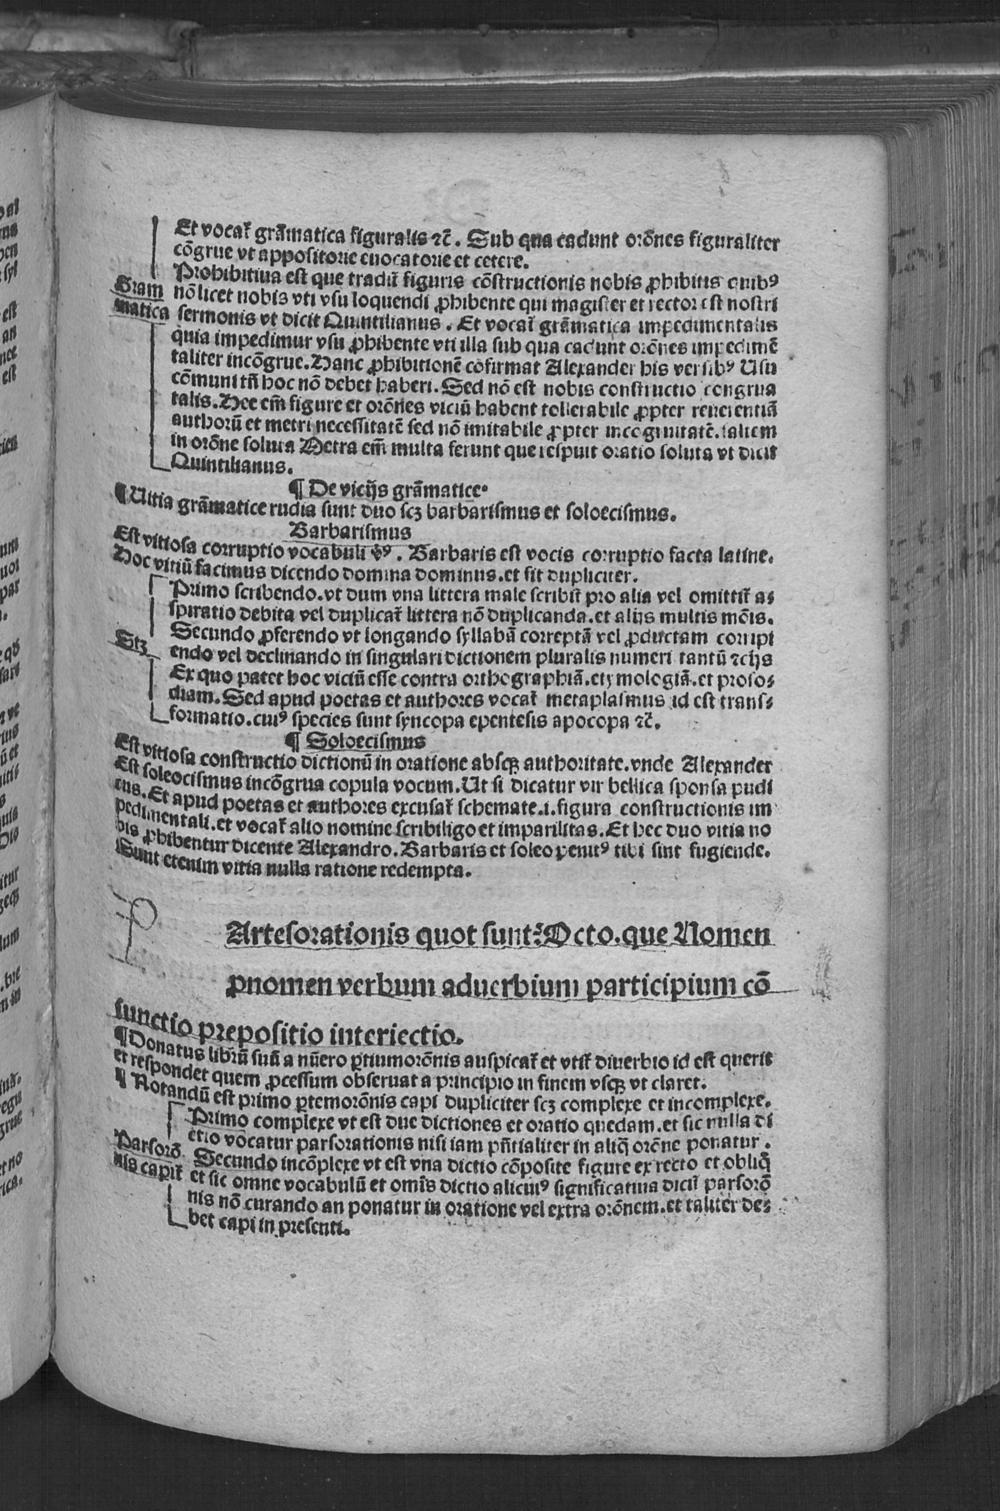 Et vocat᷑ grãmatica figuralis ⁊c̃. Sub qua cadunt orõnes figuraliter
cõgrue vt appositorie euocatorie et cetere.
Prohibitiua est que tradit᷑ figuris cõstructionis nobis ꝓhibitis quibꝰ
nõ licet nobis vti vsu loquendi ꝓhibente qui magister et rector est nostri
Gram
matica sermonis vt dicit Quintilianus. Et vocat᷑ grãmatica impedimentalis
quia impedimur vsu ꝓhibente vti illa sub qua cadunt orõnes impedimẽ
taliter incõgrue. Hanc ꝓhibitionẽ cõfirmat Alexander his versibꝰ Usu
cõmuni tñ hoc nõ debet haberi. Sed nõ est nobis constructio congrua
talis. Hee em̃ figure et orõnes viciũ habent tollerabile ꝓpter reuerentiã
authorũ et metri necessitatẽ sed nõ imitabile ꝓpter incogruitatẽ. taliem
in orõne soluta Metra em̃ multa ferunt que respuit oratio soluta vt dicit
Quintilianus.
¶ De vicijs grãmatice.
¶ Uitia grãmatice rudia sunt duo scꝫ barbarismus et soloecismus.
Barbarismus
Est vitiosa corruptio vocabuli vꝰ. Barbaris est vocis corruptio facta latine.
Hoc vitiũ facimus dicendo domina dominus. et fit dupliciter.
Primo scribendo. vt dum vna littera male scribit᷑ pro alia vel omittit᷑ as⸗
spiratio debita vel duplicat᷑ littera nõ duplicanda. et alijs multis mõis.
Secundo ꝓferendo vt longando syllabã correptã vel ꝓductam corripi
Stꝫ endo vel declinando in singulari dictionem pluralis numeri tantũ ⁊cijs
Ex quo patet hoc viciũ esse contra orthographiã. etymologiã. et proso⸗
diam. Sed apud poetas et authores vocat᷑ metaplasmus id est trans⸗
formatio. cuiꝰ species sunt syncopa epentesis apocopa ⁊c̃.
¶ Soloecismus
Est vitiosa constructio dictionũ in oratione absqꝫ authoritate. vnde Alexander
Est soleocismus incõgrua copula vocum. Ut si dicatur vir bellica sponsa pudi
cus. Et apud poetas et authores excusat᷑ schemate .i. figura constructionis im
pedimentali. et vocat᷑ alio nomine scribiligo et imparilitas. Et hec duo vitia no
bis ꝓhibentur dicente Alexandro. Barbaris et soleo penitꝰ tibi sint fugiende.
Sunt etenim vitia nulla ratione redempta.
P
Artesorationis quot sunt? Octo. que Nomen
ꝓnomen verbum aduerbium participium cõ
iunctio prepositio interiectio.
¶ Donatus librũ suũ a nũero ꝑtiumorõnis auspicat᷑ et vtit᷑ diuerbio id est querit
et respondet quem ꝓcessum obseruat a principio in finem vsqꝫ vt claret.
¶ Notandũ est primo ꝑtemorõnis capi dupliciter scꝫ complexe et incomplexe.
Primo complexe vt est due dictiones et oratio quedam. et sic nulla di
ctio vocatur parsorationis nisi iam pñtialiter in aliq̃ orõne ponatur.
Parsorõ Secundo incõplexe vt est vna dictio cõposite figure ex recto et obliq̃
nis capit᷑ et sic omne vocabulũ et omĩs dictio alicuiꝰ significatiua dicit᷑ parsorõ
nis nõ curando an ponatur in oratione vel extra orõnem. et taliter de⸗
bet capi in presenti.